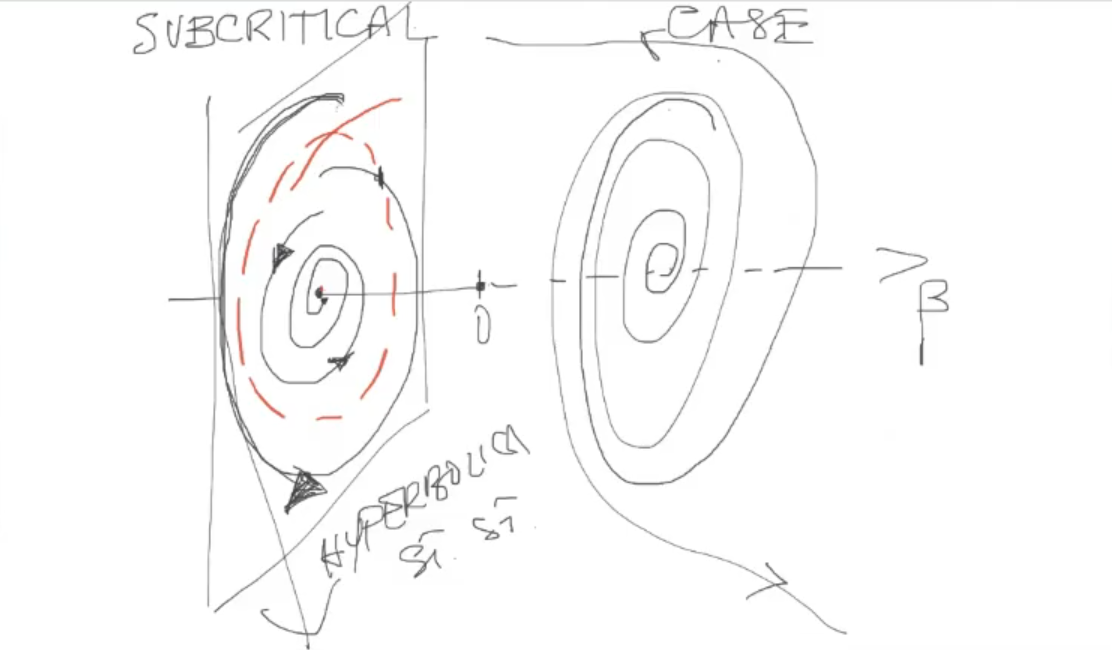 SUBCRITICAL CASE
0
β
HYPERBOLIC
ST. ST.